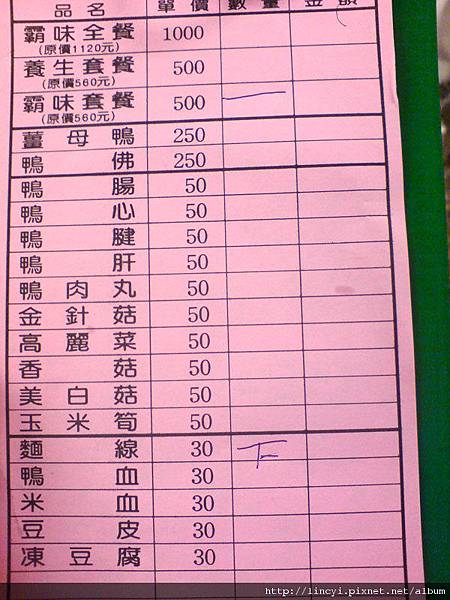 品名 單價 數量 金額
霸味全餐 1000
(原價1120元)
養生套餐 500
(原價560元)
霸味套餐 500 一
(原價560元)
薑母鴨 250
鴨佛 250
鴨腸 50
鴨心 50
鴨腱 50
鴨肝 50
鴨肉丸 50
金針菇 50
高麗菜 50
香菇 50
美白菇 50
玉米筍 50
麵線 30 下
鴨血 30
米血 30
豆皮 30
凍豆腐 30
http://lincyi.pixnet.net/album